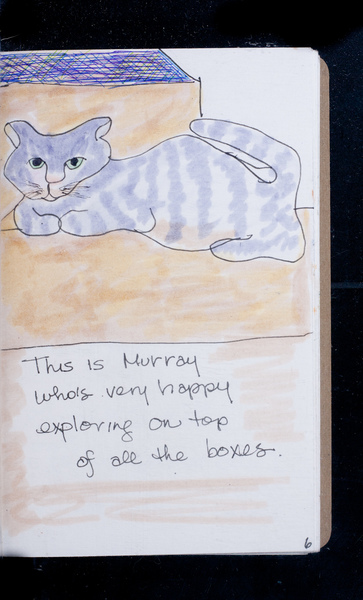 This is Murray
who's very happy
exploring on top
of all the boxes.
6